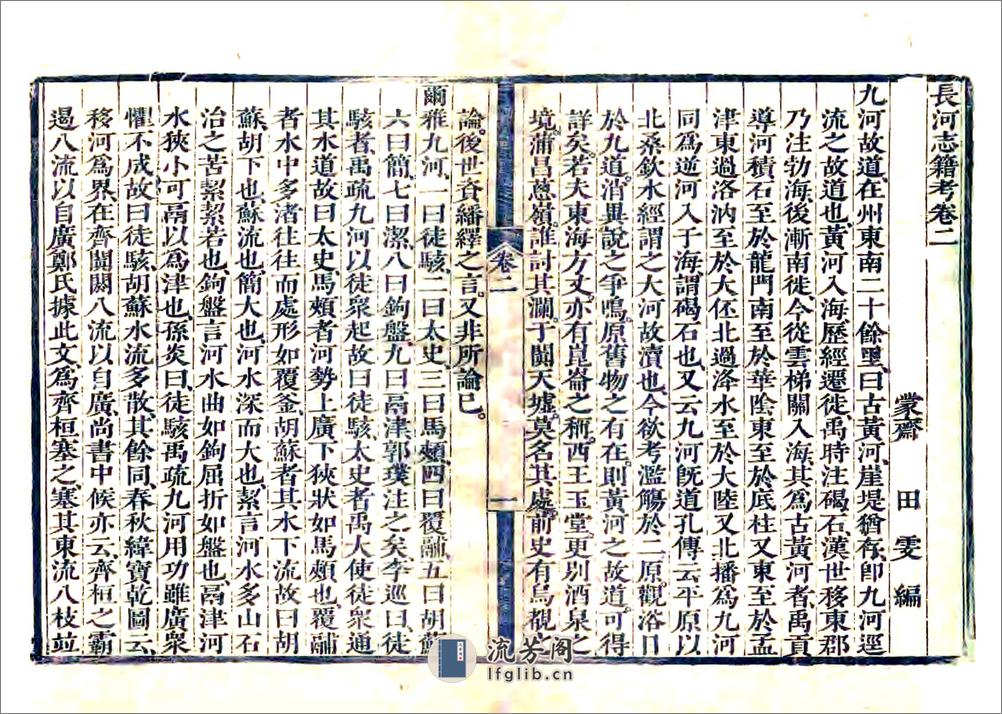 長河志籍考卷二
蒙齋 田 雯 編
九河故道在州東南二十餘里曰古黃河崖堤猶存卽九河逕
流之故道也黃河入海歷經遷徙禹時注碣石漢世移東郡
乃注勃海後漸南徙今從雲梯關入海其爲古黃河者禹貢
導河積石至於龍門南至於華陰東至於底柱又東至於孟
津東過洛汭至於大伾北過洚水至於大陸又北播爲九河
同爲逆河入于海謂碣石也又云九河旣道孔傳云平原以
北桑欽水經謂之大河故瀆也今欲考濫觴於二原觀洛汩
於九道消異說之爭鳴原舊物之有在則黃河之故道可得
詳矣若夫東海方丈亦有崑崙之稱西王玉堂更別酒泉之
境蒲昌蔥嶺誰討其瀾于闐天墟莫名其處前史有烏覩之
論後世資繙繹之言又非所論已
卷二
一
爾雅九河一曰徒駭二曰太史三曰馬頰四曰覆鬴五曰胡蘇
六曰簡七曰潔八曰鉤盤九曰鬲津郭璞注之矣李巡曰徒
駭者禹疏九河以徒衆起故曰徒駭太史者禹大使徒衆通
其水道故曰太史馬頰者河勢上廣下狹狀如馬頰也覆鬴
者水中多渚往往而處形如覆釜胡蘇者其水下流故曰胡
蘇胡下也蘇流也簡大也河水深而大也絜言河水多山石
治之苦絜絜若也鉤盤言河水曲如鉤屈折如盤也鬲津河
水狹小可鬲以爲津也孫炎曰徒駭禹疏九河用功雖廣衆
懼不成故曰徒駭胡蘇水流多散其餘同春秋緯寶乾圖云
移河爲界在齊闐閼八流以自廣尚書中候亦云齊桓之霸
遏八流以自廣鄭氏據此文爲齊桓塞之塞其東流八枝竝
流芳阁
lfglib.cn